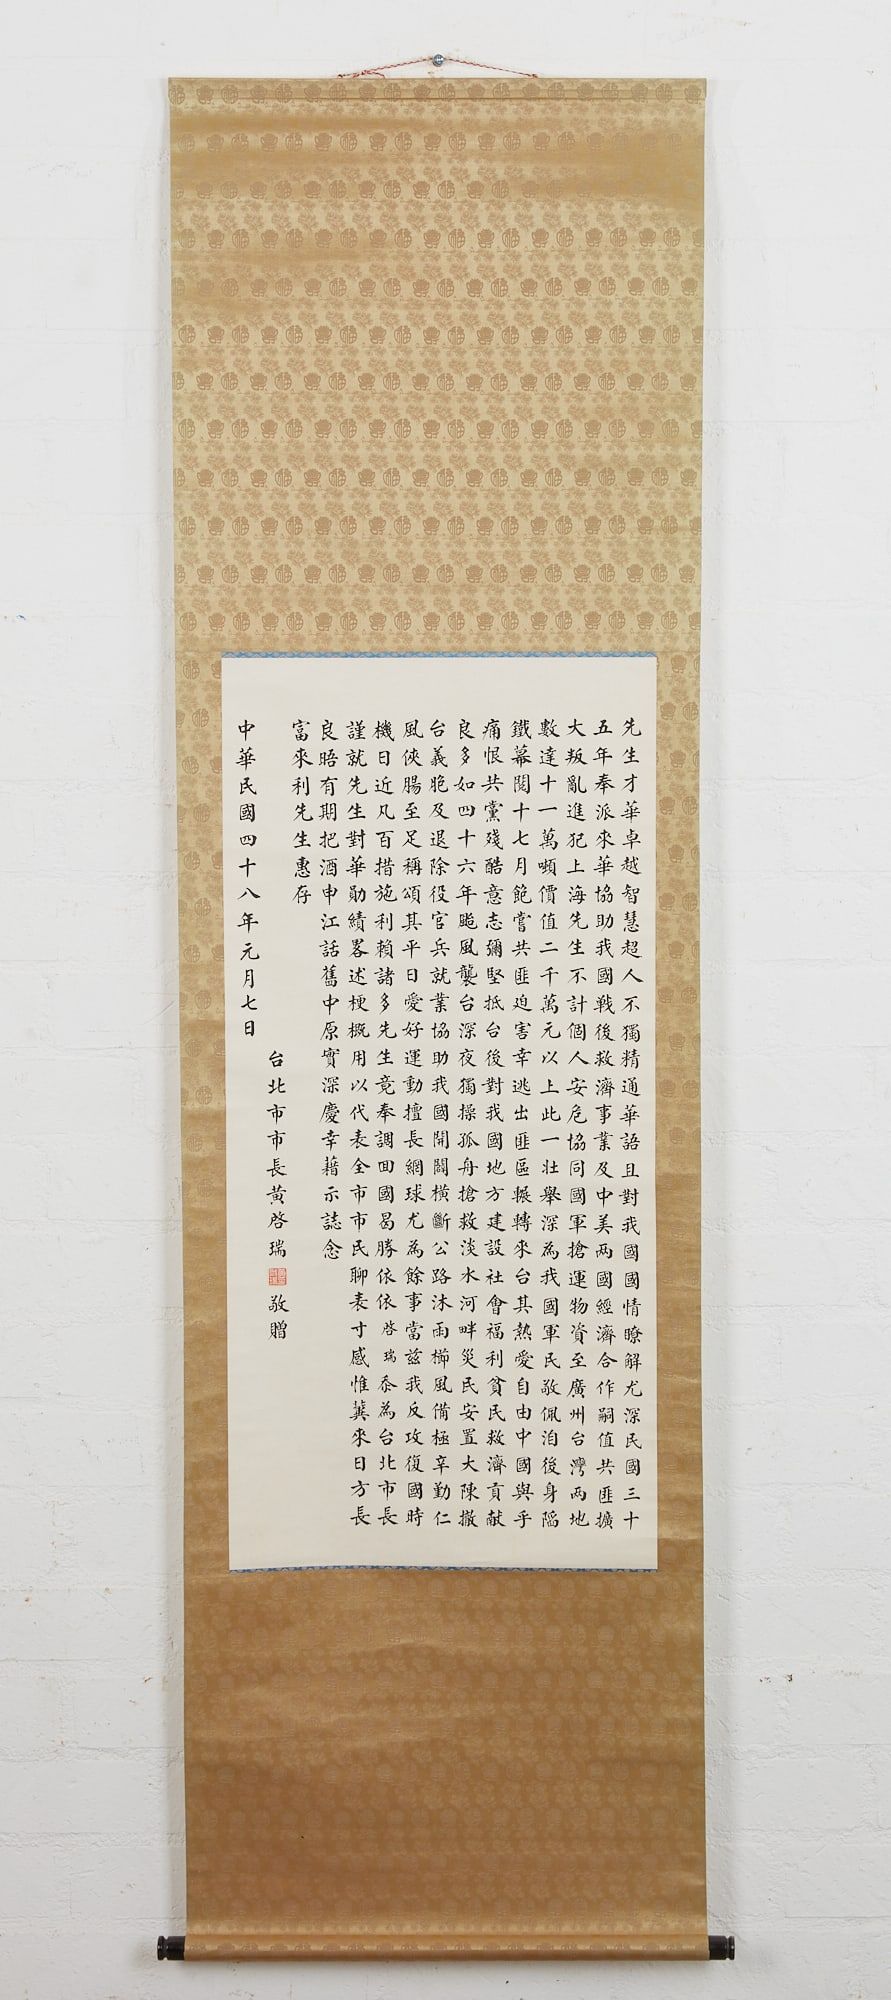 先生才華卓越智慧超人不獨精通華語且對我國國情瞭解尤深民國三十
五年奉派來華協助我國戰後救濟事業及中美两國經濟合作嗣值共匪擴
大叛亂進犯上海先生不計個人安危協同國軍搶運物資至廣州台灣两地
數達十一萬噸價值二千萬元以上此一壯舉深為我國軍民敬佩洎後身陷
鐵幕閱十七月飽嘗共匪迫害幸逃出匪區輾轉來台其熱愛自由中國與乎
痛恨共黨殘酷意志彌堅抵台後對我國地方建設社會福利貧民救濟貢献
良多如四十六年颱風襲台深夜獨操孤舟搶救淡水河畔災民安置大陳撤
台義胞及退除役官兵就業協助我國開闢橫斷公路沐雨櫛風備極辛勤仁
風俠腸至足稱頌其平日愛好運動擅長網球尤為餘事當兹我反攻復國時
機日近凡百措施利賴諸多先生竟奉調回國曷勝依依啓瑞忝為台北市長
謹就先生對華勛績畧述梗概用以代表全市市民聊表寸感惟冀來日方長
良晤有期把酒申江話舊中原實深慶幸藉示誌念
富來利先生惠存
台北市市長黃啓瑞 敬贈
中華民國四十八年元月七日